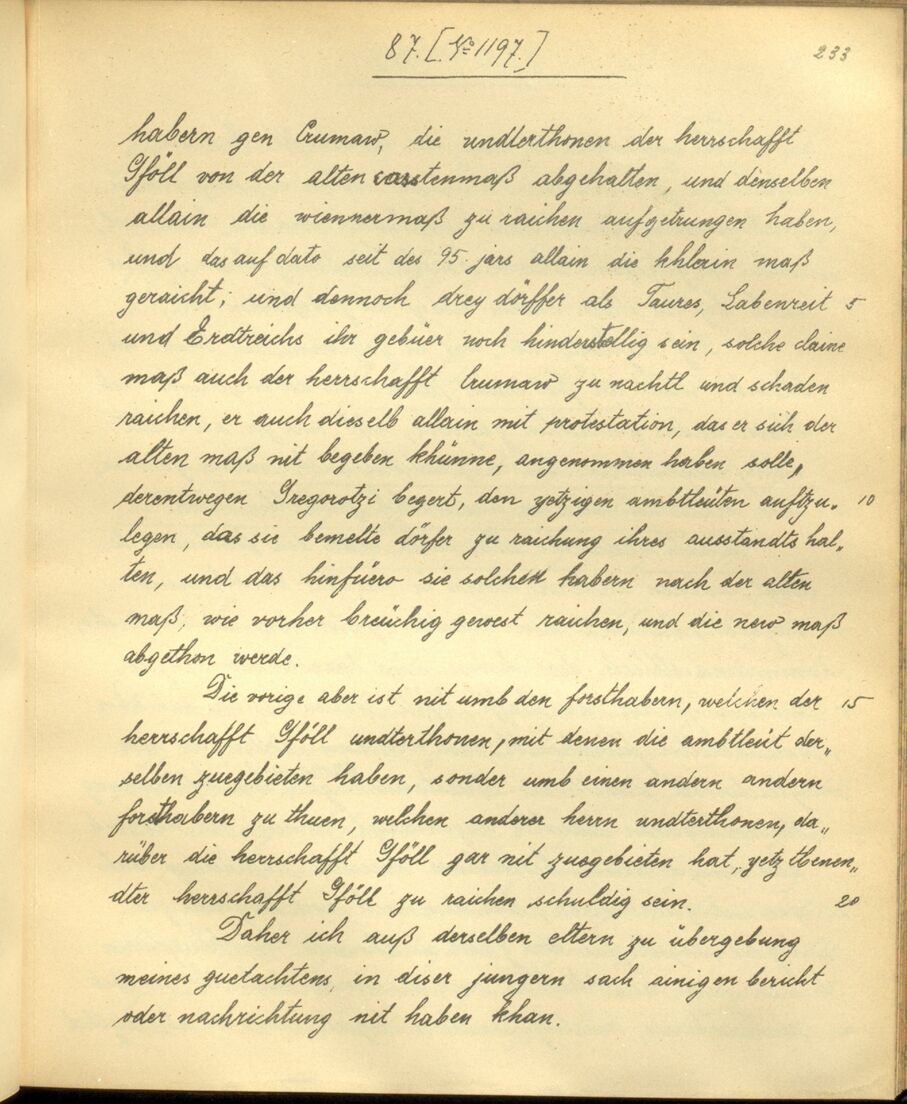 87. [No 1197.]
233
habern gen Crumaw, die undterthonen der herrschafft
Gföll von der alten casstenmaß abgehalten, und denselben
allain die wiennermaß zu raichen aufgetrungen haben,
und das auf dato seit des 95. jars allain die khlain maß
geraicht; und dennoch drey dörffer als Taures, Labenreit 5
und Erdtreichs ihr gebüer noch hinderstellig sein, solche claine
maß auch der herrschafft Crumaw zu nachtl und schaden
raichen, er auch dieselb allain mit protestation, das er sich der
alten maß nit begeben khünne, angenommen haben solle,
derentwegen Gregorotzi begert, den yetzigen ambtleüten auftzu„ 10
legen, das sie bemelte dörfer zu raichung ihres ausstandts hal„
ten, und das hinfüero sie solchen habern nach der alten
maß, wie vorher breüchig gewest raichen, und die new maß
abgethon werde.
Die vorige aber ist nit umb den forsthabern, welchen der 15
herrschafft Gföll undterthonen, mit denen die ambtleüt der„
selben zuegebieten haben, sonder umb einen andern andern
forsthabern zu thuen, welchen anderer herrn undterthonen, da„
rüber die herrschafft Gföll gar nit zuegebieten hat, yetztbenen„
dter herrschafft Gföll zu raichen schuldig sein. 20
Daher ich auß derselben eltern zu übergebung
meines guetachtens, in diser jungern sach ainigen bericht
oder nachrichtung nit haben khan.